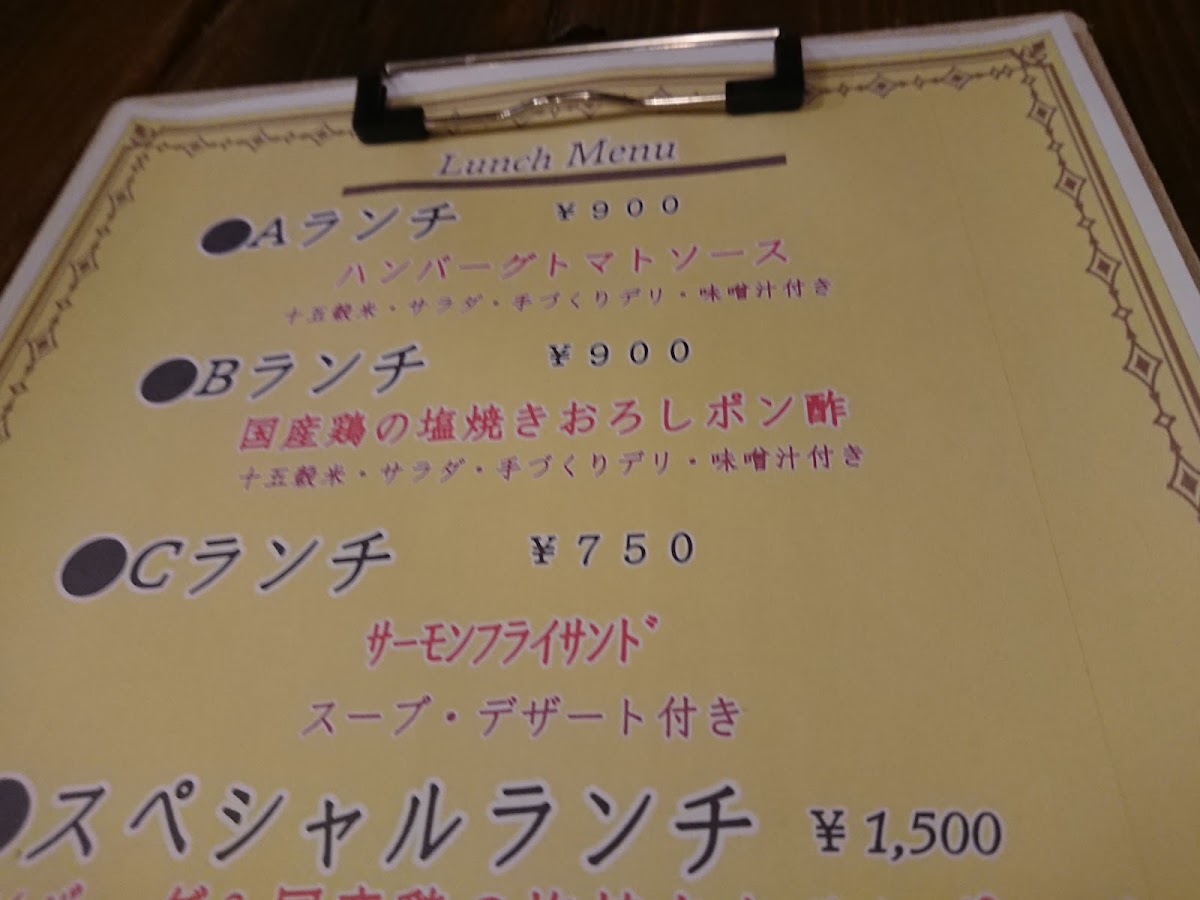 Lunch Menu
●Aランチ ￥９００
ハンバーグトマトソース
十五穀米・サラダ・手づくりデリ・味噌汁付き
●Bランチ ￥９００
国産鶏の塩焼きおろしポン酢
十五穀米・サラダ・手づくりデリ・味噌汁付き
●Cランチ ￥７５０
ｻｰﾓﾝﾌﾗｲｻﾝﾄﾞ
スープ・デザート付き
●スペシャルランチ ￥1,500